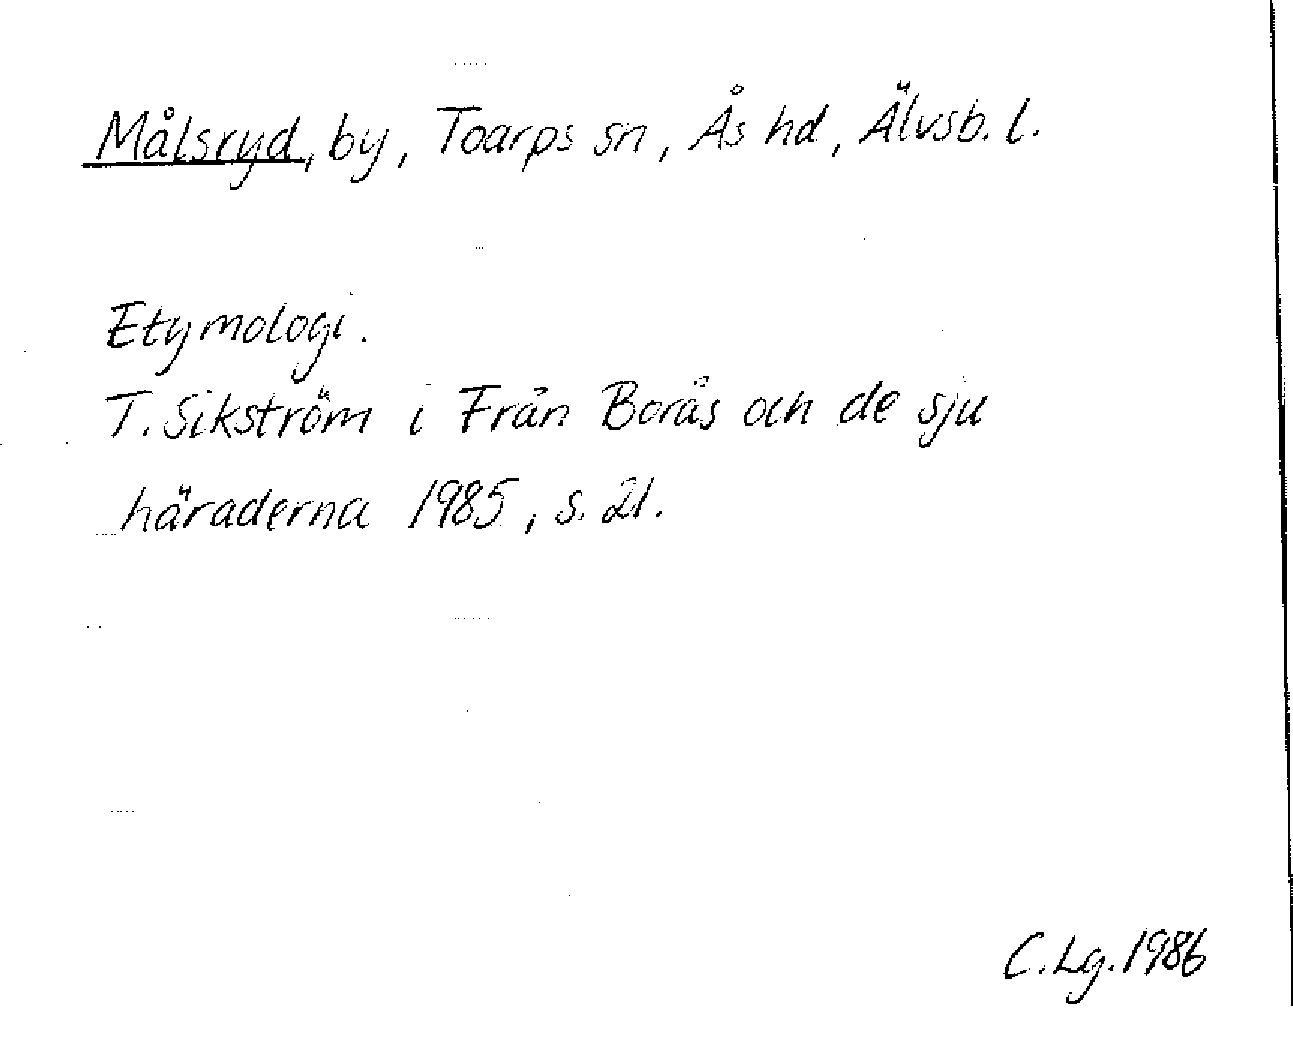 Målsryd, by, Toarps sn, Ås hd, Älvsb. l.
Etymologi.
T. Sikström i Från Borås och de sju
häraderna 1985, s. 21.
C. Lg. 1986